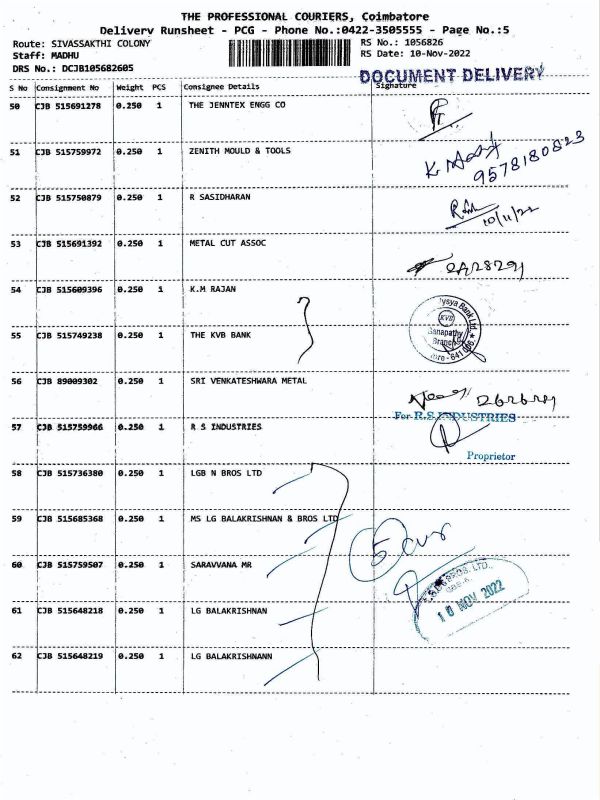 THE PROFESSIONAL COURIERS, Coimbatore
Delivery Runsheet - PCG - Phone No.:0422-3505555 - Page No.:5
Route: SIVASSAKTHI COLONY
Staff: MADHU
DRS No.: DCJB105682605
RS No.: 1056826
RS Date: 10-Nov-2022
DOCUMENT DELIVERY
S No Consignment No Weight PCS Consignee Details Signature
50 CJB 515691278 0.250 1 THE JENNTEX ENGG CO
51 CJB 515759972 0.250 1 ZENITH MOULD & TOOLS
9578180823
52 CJB 515750879 0.250 1 R SASIDHARAN
10/11/22
53 CJB 515691392 0.250 1 METAL CUT ASSOC
54 CJB 515609396 0.250 1 K.M RAJAN
55 CJB 515749238 0.250 1 THE KVB BANK
Vysya Bank Ltd.
KVB
Ganapathy
Branch
56 CJB 89009302 0.250 1 SRI VENKATESHWARA METAL
57 CJB 515759966 0.250 1 R S INDUSTRIES
For R.S.INDUSTRIES
Proprietor
58 CJB 515736380 0.250 1 LGB N BROS LTD
59 CJB 515685368 0.250 1 MS LG BALAKRISHNAN & BROS LTD
5
60 CJB 515759507 0.250 1 SARAVVANA MR
BROS. LTD.,
10 NOV 2022
61 CJB 515648218 0.250 1 LG BALAKRISHNAN
62 CJB 515648219 0.250 1 LG BALAKRISHNANN